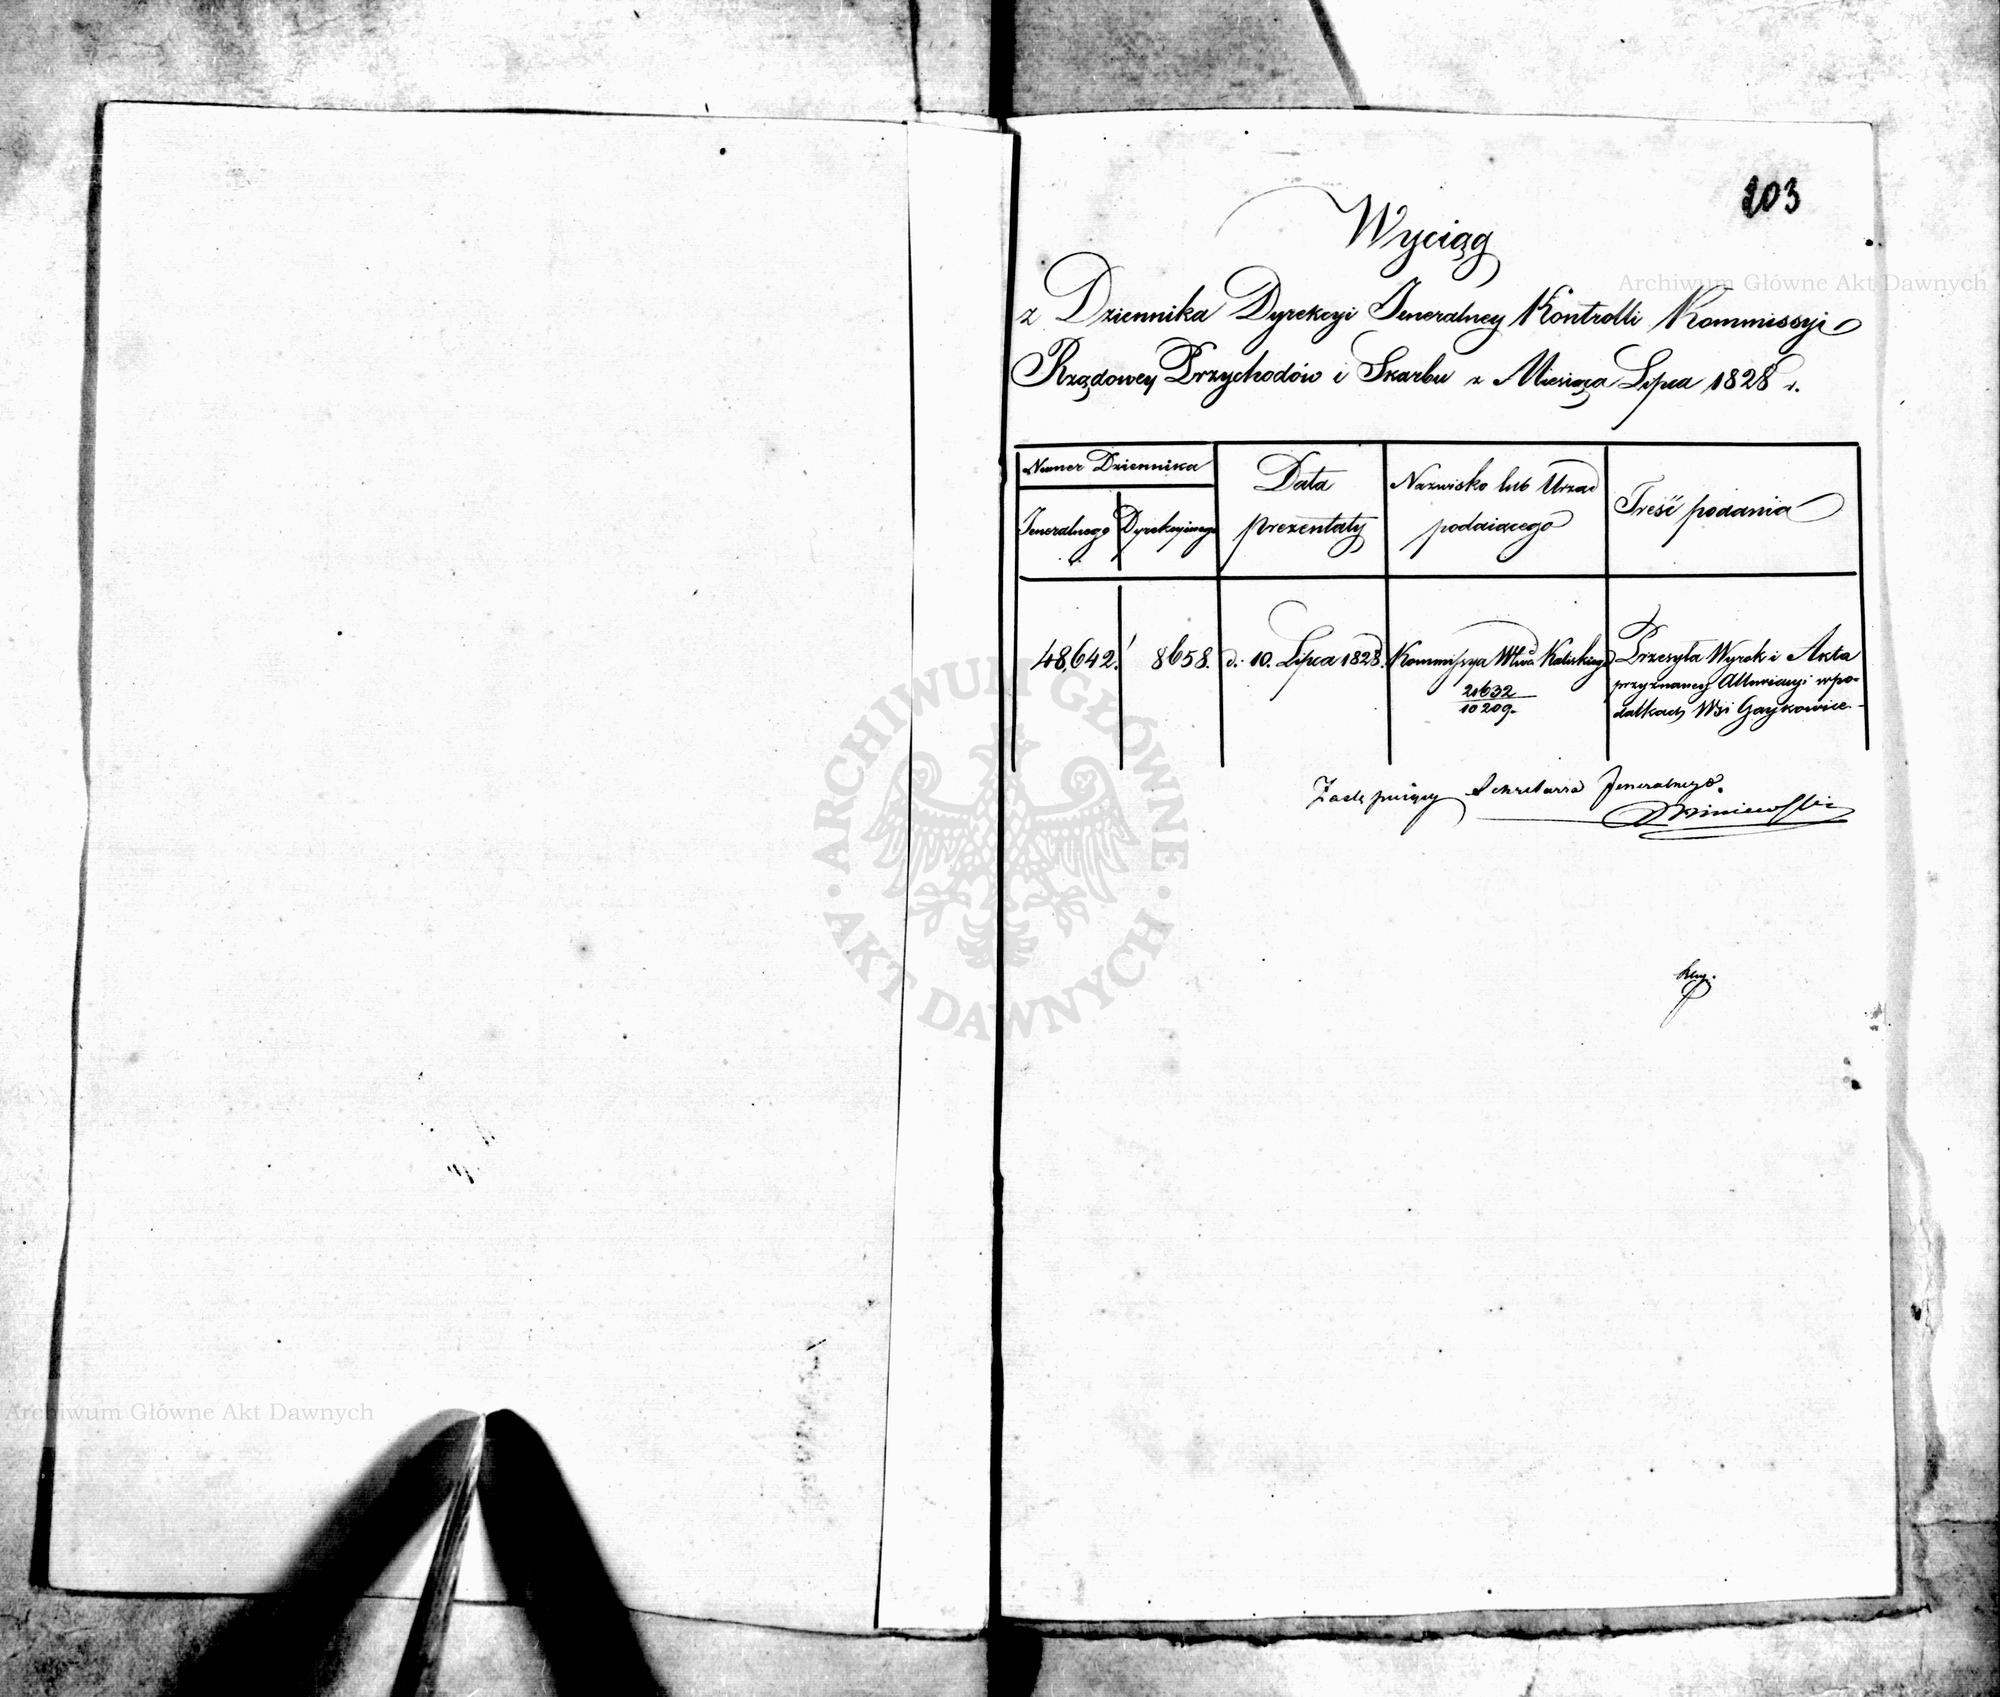 203
Wyciąg
z Dziennika Dyrekcyi Jeneralney Kontrolli Kommissyi
Rządowey Przychodów i Skarbu z Miesiąca Lipca 1828 r.
Numer Dziennika
Jeneralnego
Dyrekcyinego
Data
prezentaty
Nazwisko lub Urząd
podaiącego
Treść podania
48,642.
8658.
d. 10. Lipca 1828.
Kommissya Wwa Kaliskiego
21632
10209.
Przesyła Wyrok i Akta
przyznaney Allewiacyi w po-
datkach Wsi Gaykowice.
Zastępuiący Sekretarza Jeneralnego.
Archiwum Główne Akt Dawnych
ARCHIWUM GŁÓWNE
AKT DAWNYCH
Archiwum Główne Akt Dawnych